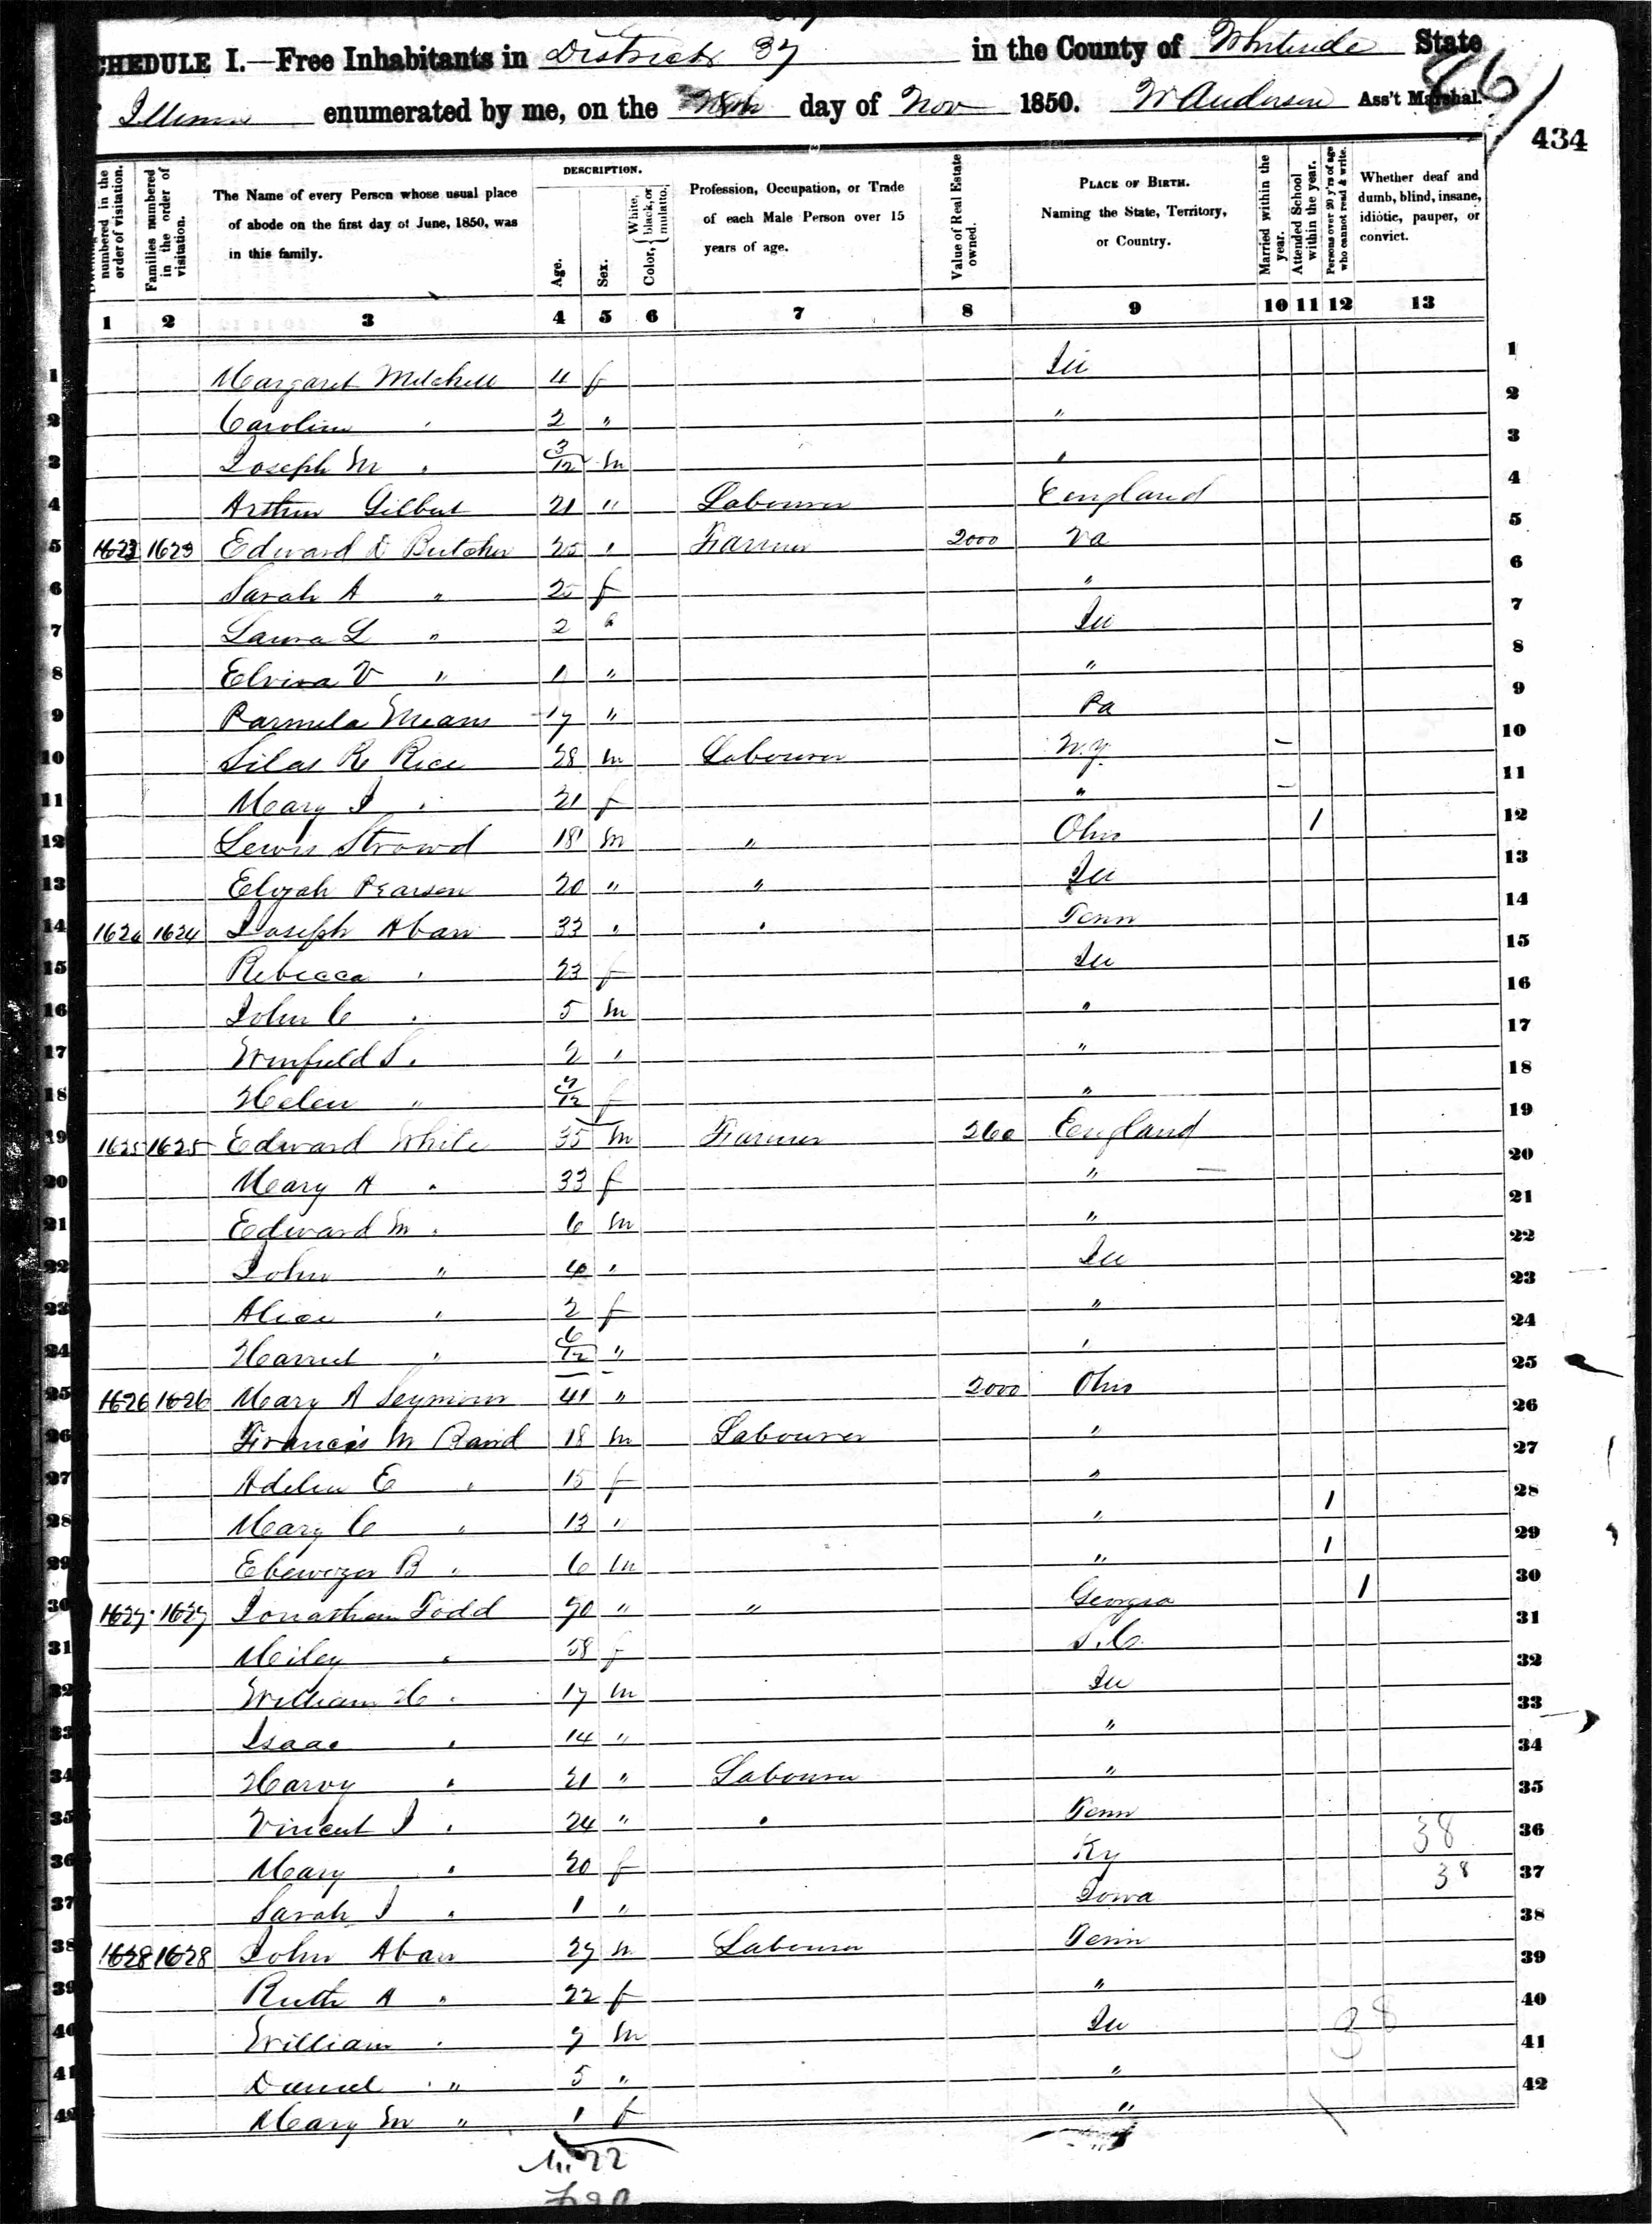 CHEDULE I.—Free Inhabitants in District 37 in the County of Whiteside State
Illinois enumerated by me, on the day of Nov 1850. W Anderson Ass't Marshal.
86
434
numbered in the order of visitation.
Families numbered in the order of visitation.
The Name of every Person whose usual place of abode on the first day of June, 1850, was in this family.
DESCRIPTION.
Age.
Sex.
Color, { White, black, or mulatto.
Profession, Occupation, or Trade of each Male Person over 15 years of age.
Value of Real Estate owned.
PLACE OF BIRTH. Naming the State, Territory, or Country.
Married within the year.
Attended School within the year.
Persons over 20 y'rs of age who cannot read & write.
Whether deaf and dumb, blind, insane, idiotic, pauper, or convict.
1 2 3 4 5 6 7 8 9 10 11 12 13
1 Margaret Mitchell 4 f Ill 1
2 Caroline " 2 " " 2
3 Joseph M " 3/12 m " 3
4 Arthur Gilbert 21 " Labourer England 4
5 1623 1623 Edward D Butcher 25 " Farmer 2000 Va 5
6 Sarah A " 25 f " 6
7 Laura L " 2 " Ill 7
8 Elvira V " 1 " " 8
9 Parmela Means 17 " Pa 9
10 Silas R Rice 28 m Labourer N.Y. – 10
11 Mary J " 21 f " – 11
12 Lewis Strowd 18 m " Ohio 1 12
13 Elijah Pearson 20 " " Ill 13
14 1624 1624 Joseph Aban 33 " " Tenn 14
15 Rebecca " 23 f Ill 15
16 John C " 5 m " 16
17 Winfield S. " 2 " " 17
18 Helen " 7/12 f " 18
19 1625 1625 Edward White 35 m Farmer 260 England 19
20 Mary A " 33 f " 20
21 Edward M " 6 m " 21
22 John " 4 " Ill 22
23 Alice " 2 f " 23
24 Harriet " 6/12 " " 24
25 1626 1626 Mary A Seymour 41 " 2000 Ohio 25
26 Francis M Rand 18 m Labourer " 26
27 Adelia E " 15 f " 27
28 Mary C " 13 " " 1 28
29 Ebenezer B " 6 m " 1 29
30 1627 1627 Jonathan Todd 70 " " Georgia 1 30
31 Miley " 58 f S.C. 31
32 William H " 17 m Ill 32
33 Isaac " 14 " " 33
34 Harvy " 21 " Labourer " 34
35 Vincent J " 24 " " Tenn 35
36 Mary " 20 f Ky 38 36
37 Sarah J " 1 " Iowa 38 37
38 1628 1628 John Aban 27 m Labourer Tenn 38
39 Ruth A " 22 f " 39
40 William " 7 m Ill 38 40
41 Daniel " 5 " " 41
42 Mary M " 1 f " 42
M 22
F 20